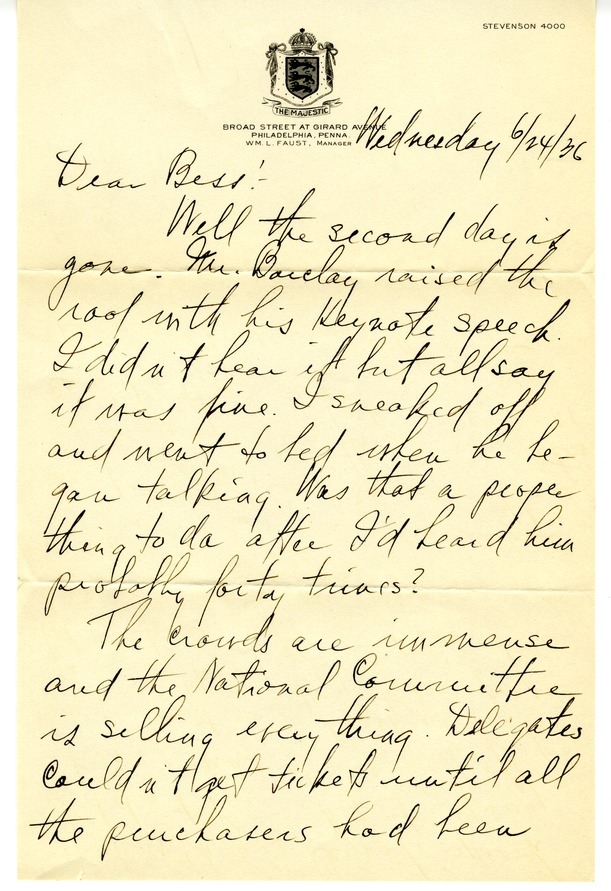 STEVENSON 4000
THE MAJESTIC
BROAD STREET AT GIRARD AVENUE
PHILADELPHIA, PENNA.
WM. L. FAUST, MANAGER
Wednesday 6/24/36
Dear Bess:-
Well the second day is
gone. Mr. Barclay raised the
roof with his Keynote speech.
I didn't hear it but all say
it was fine. I sneaked off
and went to bed when he be-
gan talking. Was that a proper
thing to do after I'd heard him
probably forty times?
The crowds are immense
and the National Committee
is selling everything. Delegates
couldn't get tickets until all
the purchasers had been